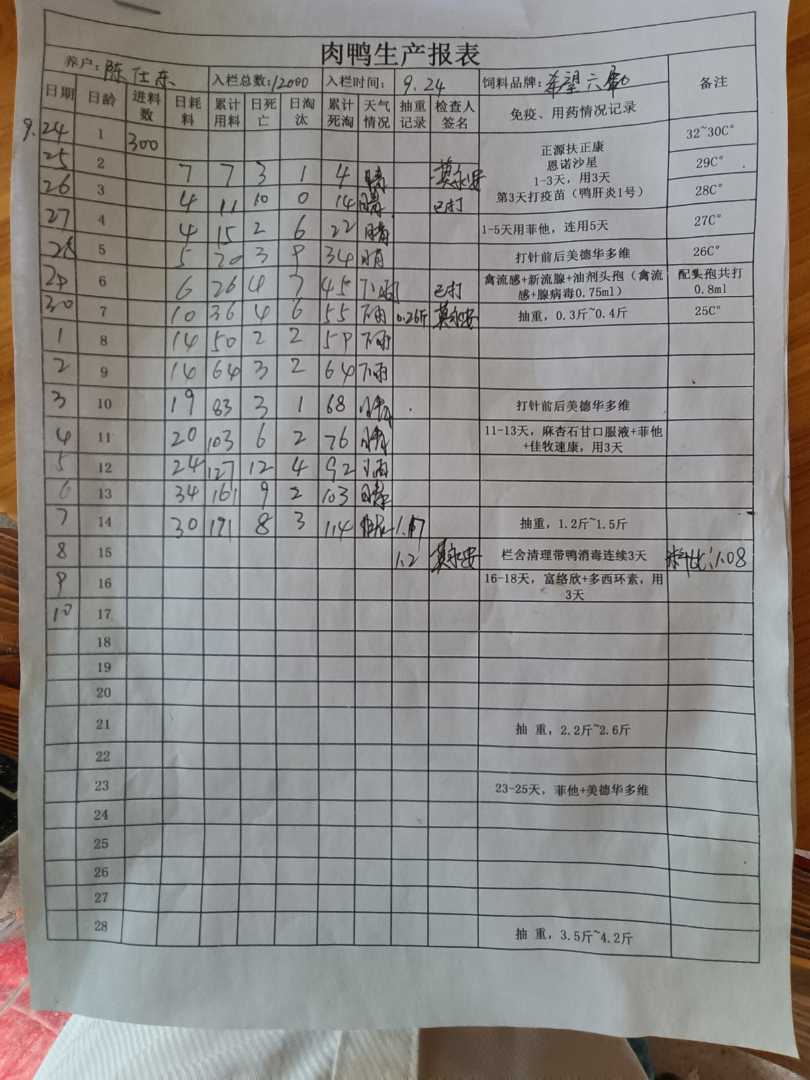 肉鸭生产报表
养户：陈仕东 入栏总数：12000 入栏时间：9.24 饲料品牌：希望六和 备注
日期 日龄 进料数 日耗料 累计用料 日死亡 日淘汰 累计死淘 天气情况 抽重记录 检查人签名 免疫、用药情况记录
9.24 1 300 正源扶正康 32~30C°
恩诺沙星
1-3天，用3天
第3天打疫苗（鸭肝炎1号）
25 2 7 7 3 1 4 晴 莫永安 29C°
26 3 4 11 10 0 14 晴 已打 28C°
27 4 4 15 2 6 22 晴 1-5天用菲他，连用5天 27C°
28 5 5 20 3 9 34 晴 打针前后美德华多维 26C°
29 6 6 26 4 7 45 已打 禽流感+新流腺+油剂头孢（禽流感+腺病毒0.75ml） 配头孢共打0.8ml
30 7 10 36 4 6 55 下雨 0.26斤 莫永安 抽重，0.3斤~0.4斤 25C°
1 8 14 50 2 2 59 下雨
2 9 14 64 3 2 64 下雨
3 10 19 83 3 1 68 打针前后美德华多维
4 11 20 103 6 2 76 晴 11-13天，麻杏石甘口服液+菲他+佳牧速康，用3天
5 12 24 127 12 4 92
6 13 34 161 9 2 103
7 14 30 191 8 3 114 1.17 抽重，1.2斤~1.5斤
8 15 1.2 莫永安 栏舍清理带鸭消毒连续3天 料比：1.08
9 16 16-18天，富络欣+多西环素，用3天
10 17
18
19
20
21 抽 重，2.2斤~2.6斤
22
23 23-25天，菲他+美德华多维
24
25
26
27
28 抽 重，3.5斤~4.2斤